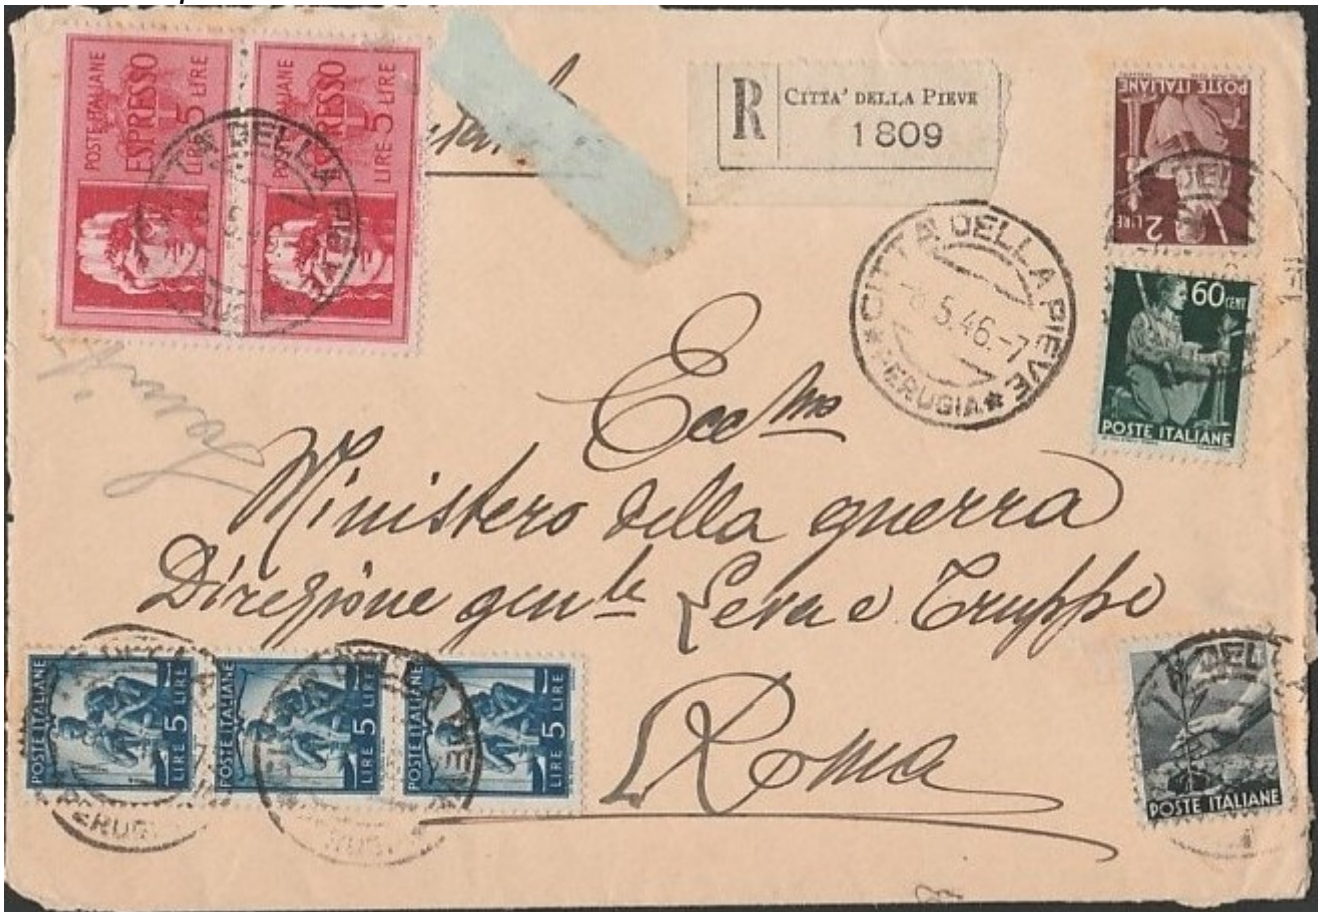 POSTE ITALIANE
ESPRESSO
LIRE 5 LIRE
POSTE ITALIANE
ESPRESSO
LIRE 5 LIRE
R
CITTA' DELLA PIEVE
1809
POSTE ITALIANE
2 LIRE
60 CENT
POSTE ITALIANE
CITTA DELLA PIEVE
8.5.46.-7
*PERUGIA*
Ecc.mo
Ministero della guerra
Direzione gen.le Leva e Truppe
Roma
POSTE ITALIANE
LIRE 5 LIRE
POSTE ITALIANE
LIRE 5 LIRE
POSTE ITALIANE
LIRE 5 LIRE
POSTE ITALIANE